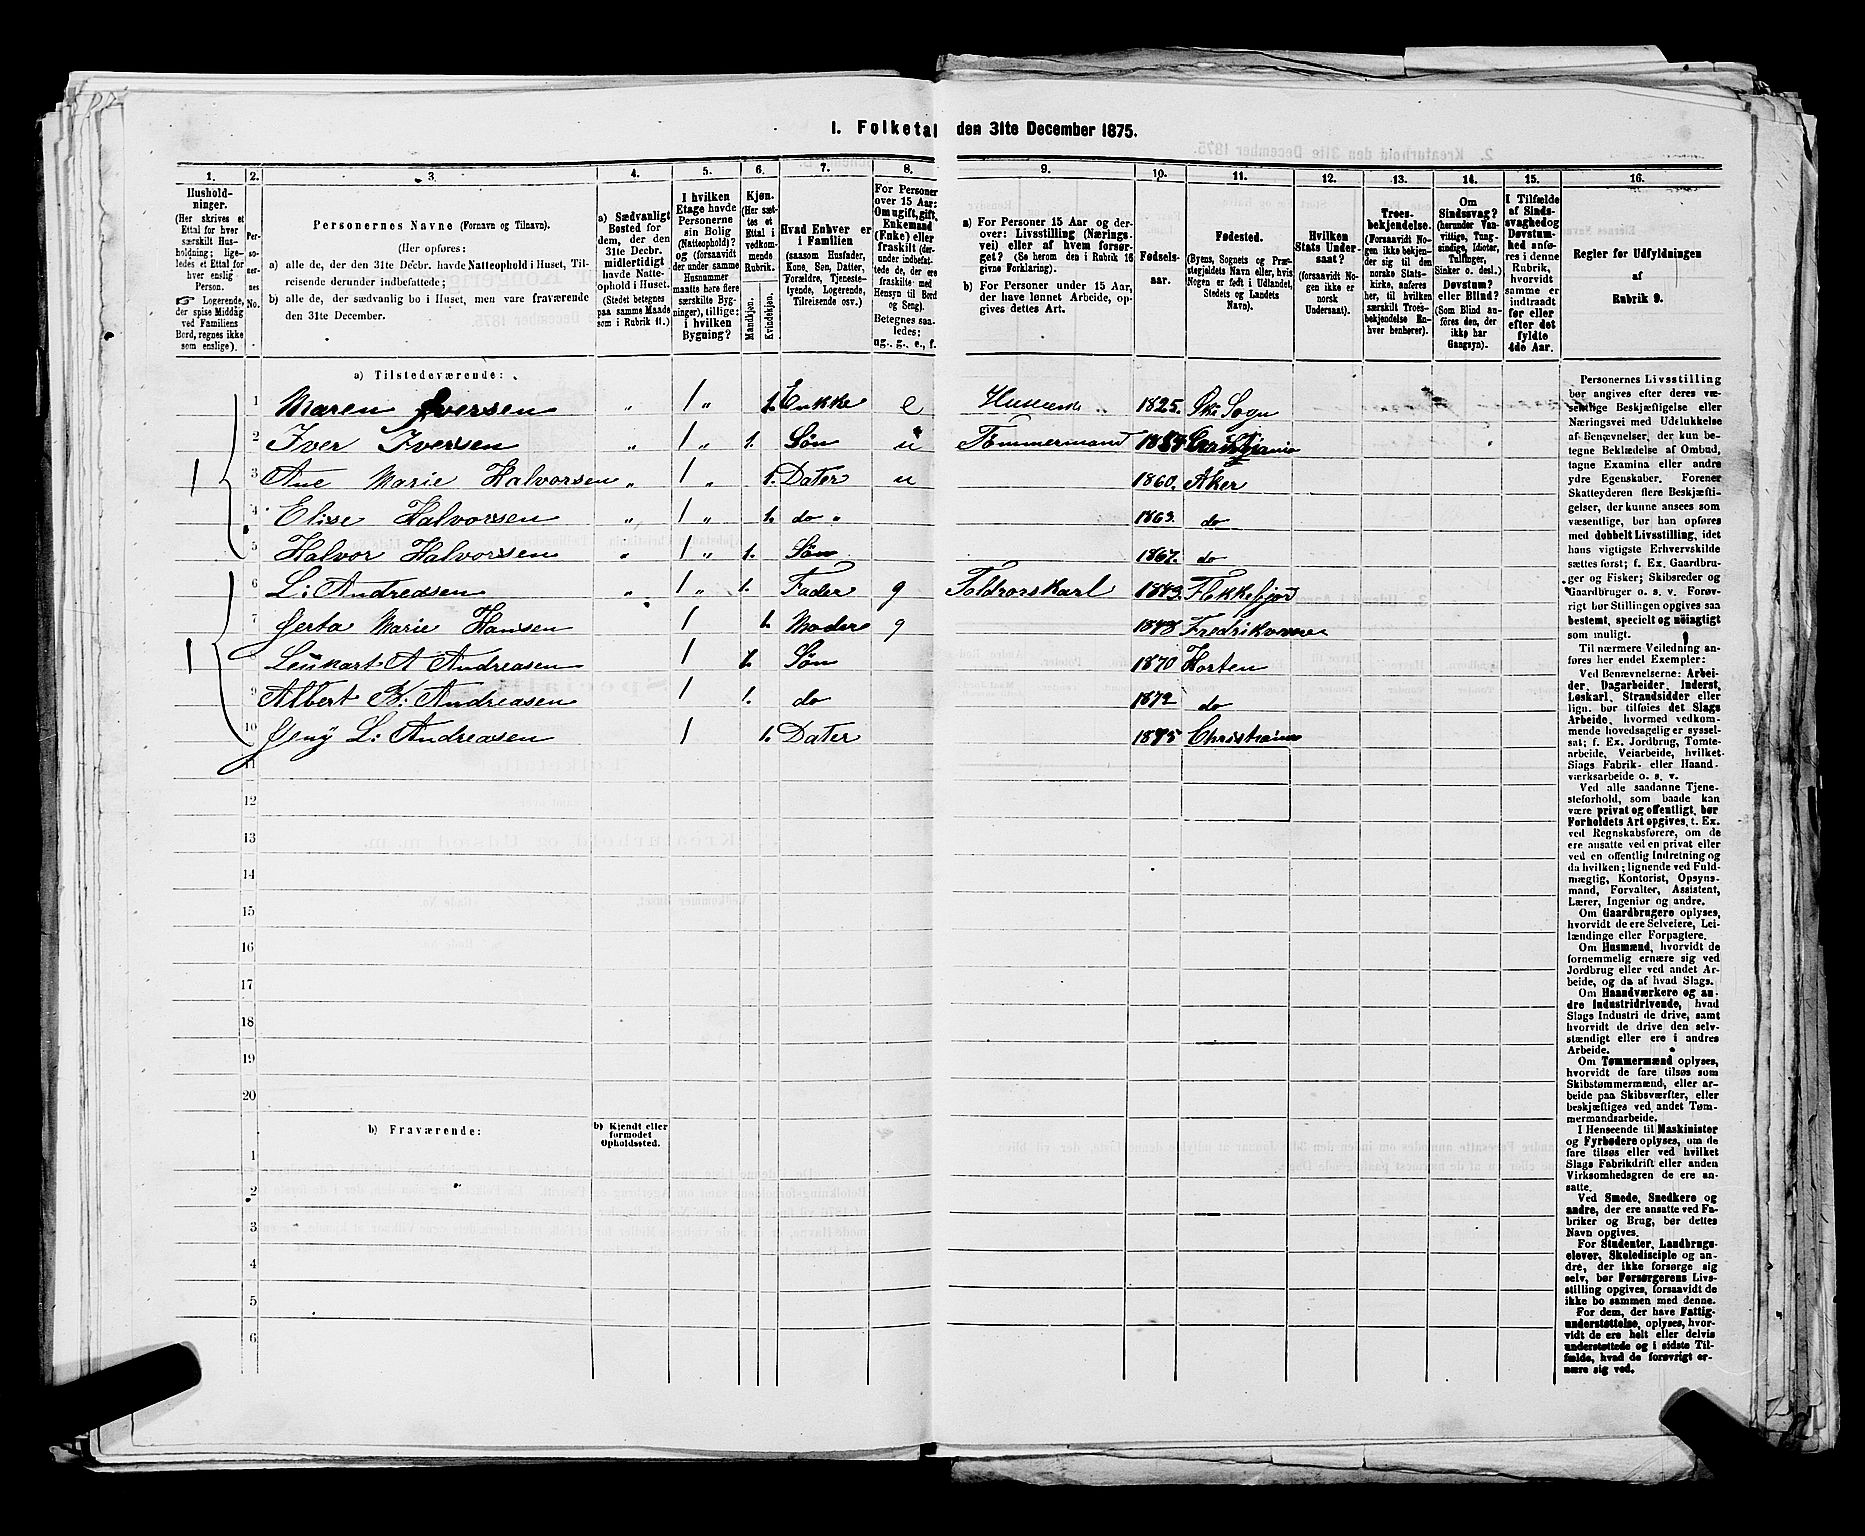 1. Folketal den 31te December 1875.
1. 2. 3. 4. 5. 6. 7. 8. 9. 10. 11. 12. 13. 14. 15. 16.
Hushold-
ninger.
(Her skrives et
Ettal for hver
særskilt Hus-
holdning; lige-
ledes et Ettal for
hver enslig
Person.
☞ Logerende,
der spise Middag
ved Familiens
Bord, regnes ikke
som enslige).
Per-
soner-
nes
No.
Personernes Navne (Fornavn og Tilnavn).
(Her opføres:
a) alle de, der den 31te Decbr. havde Natteophold i Huset, Til-
reisende derunder indbefattede;
b) alle de, der sædvanlig bo i Huset, men vare fraværende
den 31te December.
a) Sædvanligt
Bosted for
dem, der den
31te Decbr.
midlertidigt
havde Natte-
ophold i Huset.
(Stedet betegnes
paa samme Maade
som i Rubrik 11.)
I hvilken
Etage havde
Personerne
sin Bolig
(Natteophold)?
og (forsaavidt
der under samme
Husnummer
maatte høre flere
særskilte Byg-
ninger), tillige:
i hvilken
Bygning?
Kjøn.
(Her sæt-
tes et
Ettal i
vedkom-
mende
Rubrik.
Mandkjøn.
Kvindekjøn.
Hvad Enhver er
i Familien
(saasom Husfader,
Kone, Søn, Datter,
Forældre, Tjeneste-
tyende, Logerende,
Tilreisende osv.)
For Personer
over 15 Aar:
Om ugift, gift,
Enkemand
(Enke) eller
fraskilt (der-
under indbefat-
tede de, der ere
fraskilte med
Hensyn til Bord
og Seng).
Betegnes saa-
ledes:
ug., g., e., f.
a) For Personer 15 Aar og der-
over: Livsstilling (Nærings-
vei) eller af hvem forsør-
get? (Se herom den i Rubrik 16
givne Forklaring).
b) For Personer under 15 Aar,
der have lønnet Arbeide, op-
gives dettes Art.
Fødsels-
aar.
Fødested.
(Byens, Sognets og Præ-
stegjeldets Navn eller, hvis
Nogen er født i Udlandet,
Stedets og Landets
Navn).
Hvilken
Stats Under-
saat?
(forsaavidt No-
gen ikke er
norsk
Undersaat).
Troes-
bekjendelse.
(Forsaavidt No-
gen ikke bekjen-
der sig til den
norske Stats-
kirke, anføres
her, til hvilken
særskilt Troes-
bekjendelse En-
hver henhører).
Om
Sindssvag?
(herunder Van-
vittige, Tung-
sindige, Idioter,
Tullinger,
Sinker o. desl.)
Døvstum?
eller Blind?
(Som Blind an-
føres den, der
ikke har
Gangsyn).
I Tilfælde
af Sinds-
svaghed og
Døvstum-
hed anfø-
res i denne
Rubrik,
hvorvidt
samme er
indtraadt
før eller
efter det
fyldte
4de Aar.
Regler for Udfyldningen
af
Rubrik 9.
a) Tilstedeværende:
1 Maren Iversen „ 1 „ 1. Enkke e 1825. Sogn
2 Iver Iversen „ 1 „ 1. Søn u Tømmermand
3 Ane Marie Halvorsen „ 1 „ 1. Dater u 1860. Aker
4 Elise Halvorsen „ 1 „ 1. do „ 1863. do
5 Halvor Halvorsen „ 1 „ 1. Søn 1867. do
6 L: Andreasen „ 1 „ 1. Fader g 1843. Flekkefjord
7 Gerta Marie Hansen 1 1. Moder g Fredriksværn
8 Lennart A Andreasen 1 1. Søn 1870 Horten
9 Albert K. Andreasen 1 1. do 1872 do
10 Jeny L: Andreasen 1 1. Dater 1875 Christiania
11
12
13
14
15
16
17
18
19
20
b) Fraværende:
b) Kjendt eller
formodet
Opholdssted.
1
2
3
4
5
6
Personernes Livsstilling
bør angives efter deres væ-
sentlige Beskjæftigelse eller
Næringsvei med Udelukkelse
af Benævnelser, der kun be-
tegne Beklædelse af Ombud,
tagne Examina eller andre
ydre Egenskaber. Forener
Skatteyderen flere Beskjæfti-
gelser, der kunne ansees som
væsentlige, bør han opføres
med dobbelt Livsstilling, idet
hans vigtigste Erhvervskilde
sættes først; f. Ex. Gaardbru-
ger og Fisker; Skibsreder og
Gaardbruger o. s. v. Forøv-
rigt bør Stillingen opgives saa
bestemt, specielt og nøiagtigt
som muligt.
Til nærmere Veiledning an-
føres her endel Exempler:
Ved Benævnelserne: Arbei-
der, Dagarbeider, Inderst,
Løskarl, Strandsidder eller
lign. bør tilføies det Slags
Arbeide, hvormed vedkom-
mende hovedsagelig er syssel-
sat; f. Ex. Jordbrug, Tomte-
arbeide, Veiarbeide, hvilket
Slags Fabrik- eller Haand-
værksarbeide o. s. v.
Ved alle saadanne Tjene-
steforhold, som baade kan
være privat og offentligt, bør
Forholdets Art opgives, t. Ex.
ved Regnskabsførere, om de
ere ansatte ved en privat eller
ved en offentlig Indretning og
da hvilken; lignende ved Fuld-
mægtig, Kontorist, Opsyns-
mand, Forvalter, Assistent,
Lærer, Ingeniør og andre.
Om Gaardbrugere oplyses,
hvorvidt de ere Selveiere, Lei-
lændinge eller Forpagtere.
Om Husmænd, hvorvidt de
fornemmelig ernære sig ved
Jordbrug eller ved andet Ar-
beide, og da af hvad Slags.
Om Haandværkere og an-
dre Industridrivende, hvad
Slags Industri de drive, samt
hvorvidt de drive den selv-
stændigt eller ere i andres
Arbeide.
Om Tømmermænd oplyses,
hvorvidt de fare tilsøs som
Skibstømmermænd, eller ar-
beide paa Skibsværfter, eller
beskjæftiges ved andet Tøm-
mermandsarbeide.
I Henseende til Maskinister
og Fyrbødere oplyses, om de
fare tilsøs eller ved hvilket
Slags Fabrikdrift eller anden
Virksomhedsgren de ere an-
satte.
Ved Smede, Snedkere og
andre, der ere ansatte ved Fa-
briker og Brug, bør dettes
Navn opgives.
For Studenter, Landbrugs-
elever, Skoledisciple og an-
dre, der ikke forsørge sig
selv, bør Forsørgerens Livs-
stilling opgives, forsaavidt de
ikke bo sammen med denne.
For dem, der have Fattig-
understøttelse, oplyses, hvor-
vidt de ere helt eller delvis
understøttede og i sidste Til-
fælde, hvad de forøvrigt er-
nære sig ved.